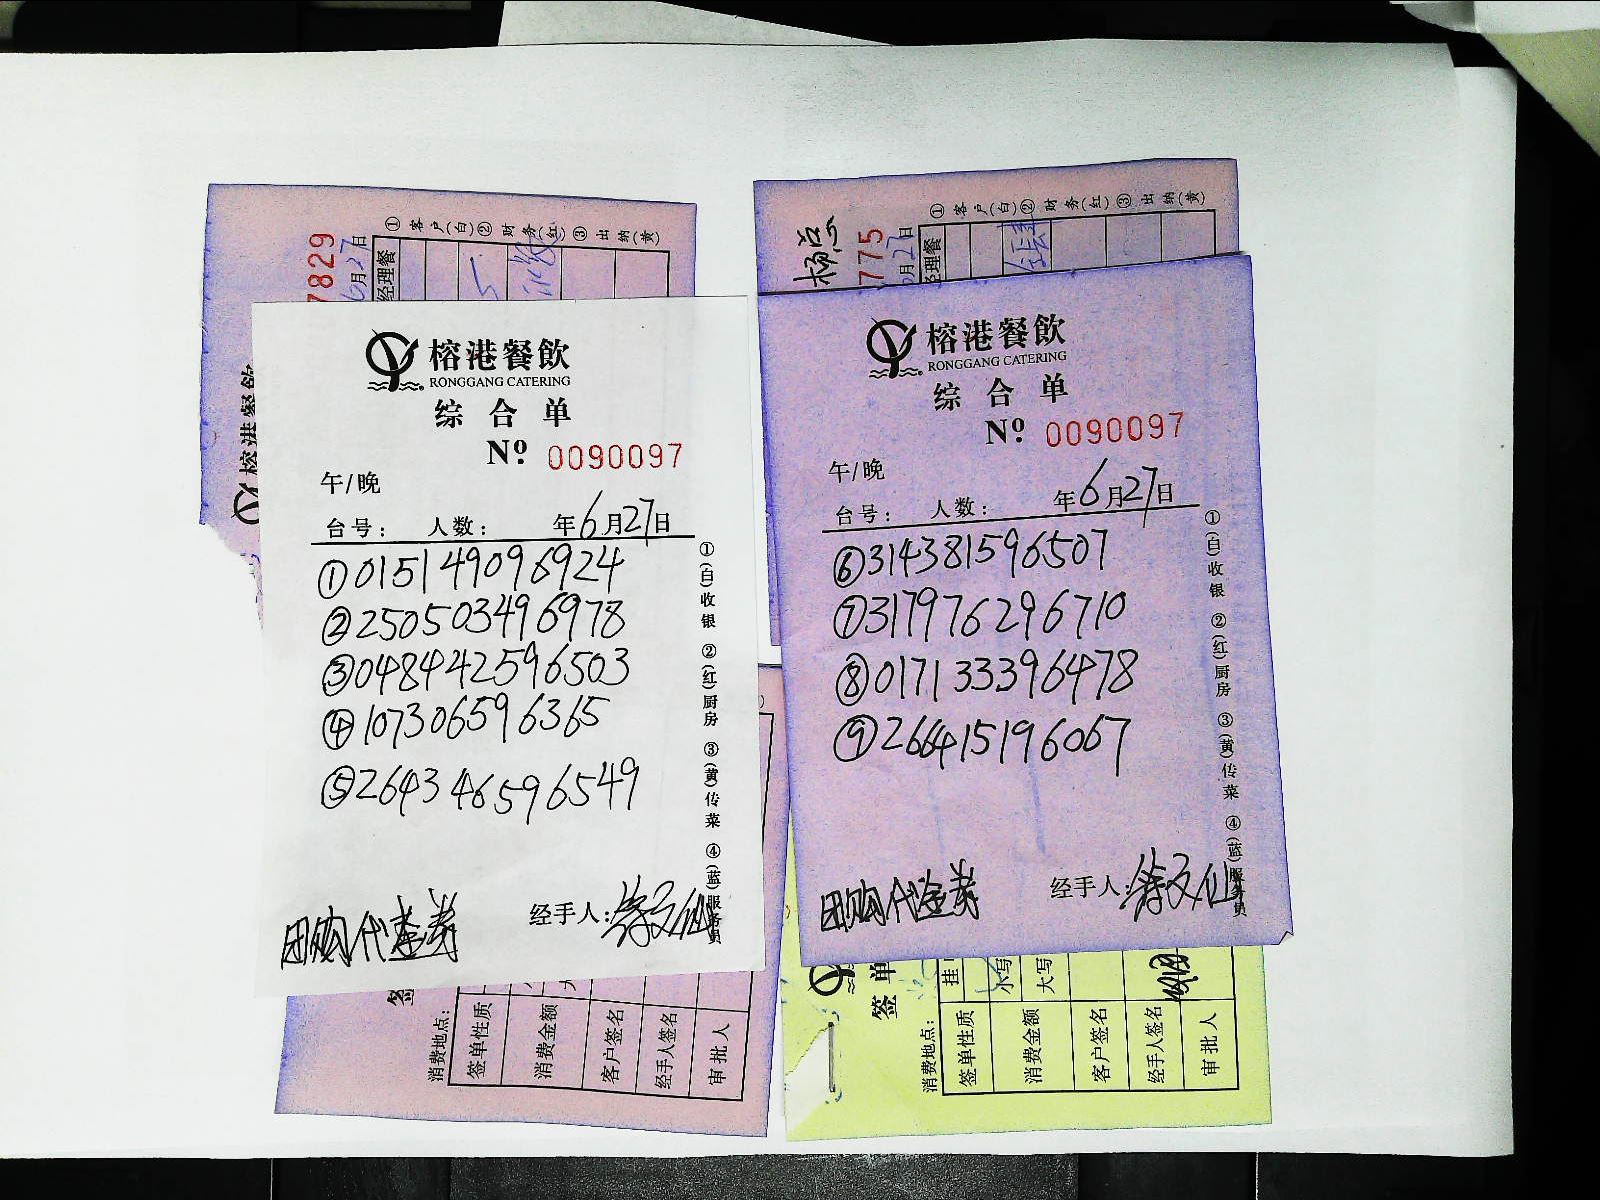 7829
6月27日
①客户(白)②财务(红)③出纳(黄)
经理餐
榕港餐飲
榕港餐飲
RONGGANG CATERING
综合单
Nº 0090097
午/晚
台号: 人数: 年6月27日
①015149096924
②250503496978
③048442596503
④107306596365
⑤264346596549
①(白)收银 ②(红)厨房 ③(黄)传菜 ④(蓝)服务员
经手人:
团购代金券
签
消费地点:
签单性质
消费金额
客户签名
经手人签名
审批人
杨总
775
月27日
①客户(白)②财务(红)③出纳(黄)
经理餐
榕港餐飲
RONGGANG CATERING
综合单
Nº 0090097
午/晚
台号: 人数: 年6月27日
⑥314381596507
⑦317976296710
⑧017133396478
⑨266415196067
①(白)收银 ②(红)厨房 ③(黄)传菜 ④(蓝)服务员
经手人:
团购代金券
签单
消费地点:
签单性质 挂
消费金额 小写
大写
客户签名
经手人签名
审批人